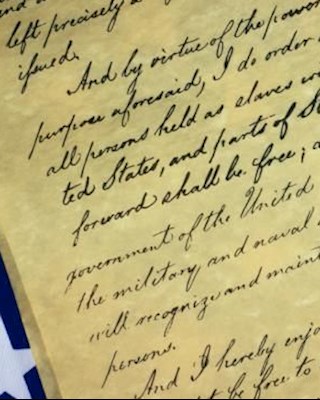 left precisely a
issued.
And by virtue of the power
purpose aforesaid, I do order
all persons held as slaves
ted States, and parts of S
forward shall be free; a
government of the United
the military and naval
will recognize and maint
persons.
And I hereby enjo
be free to